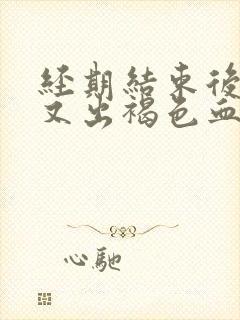 經期結束後
又出褐色血
心馳